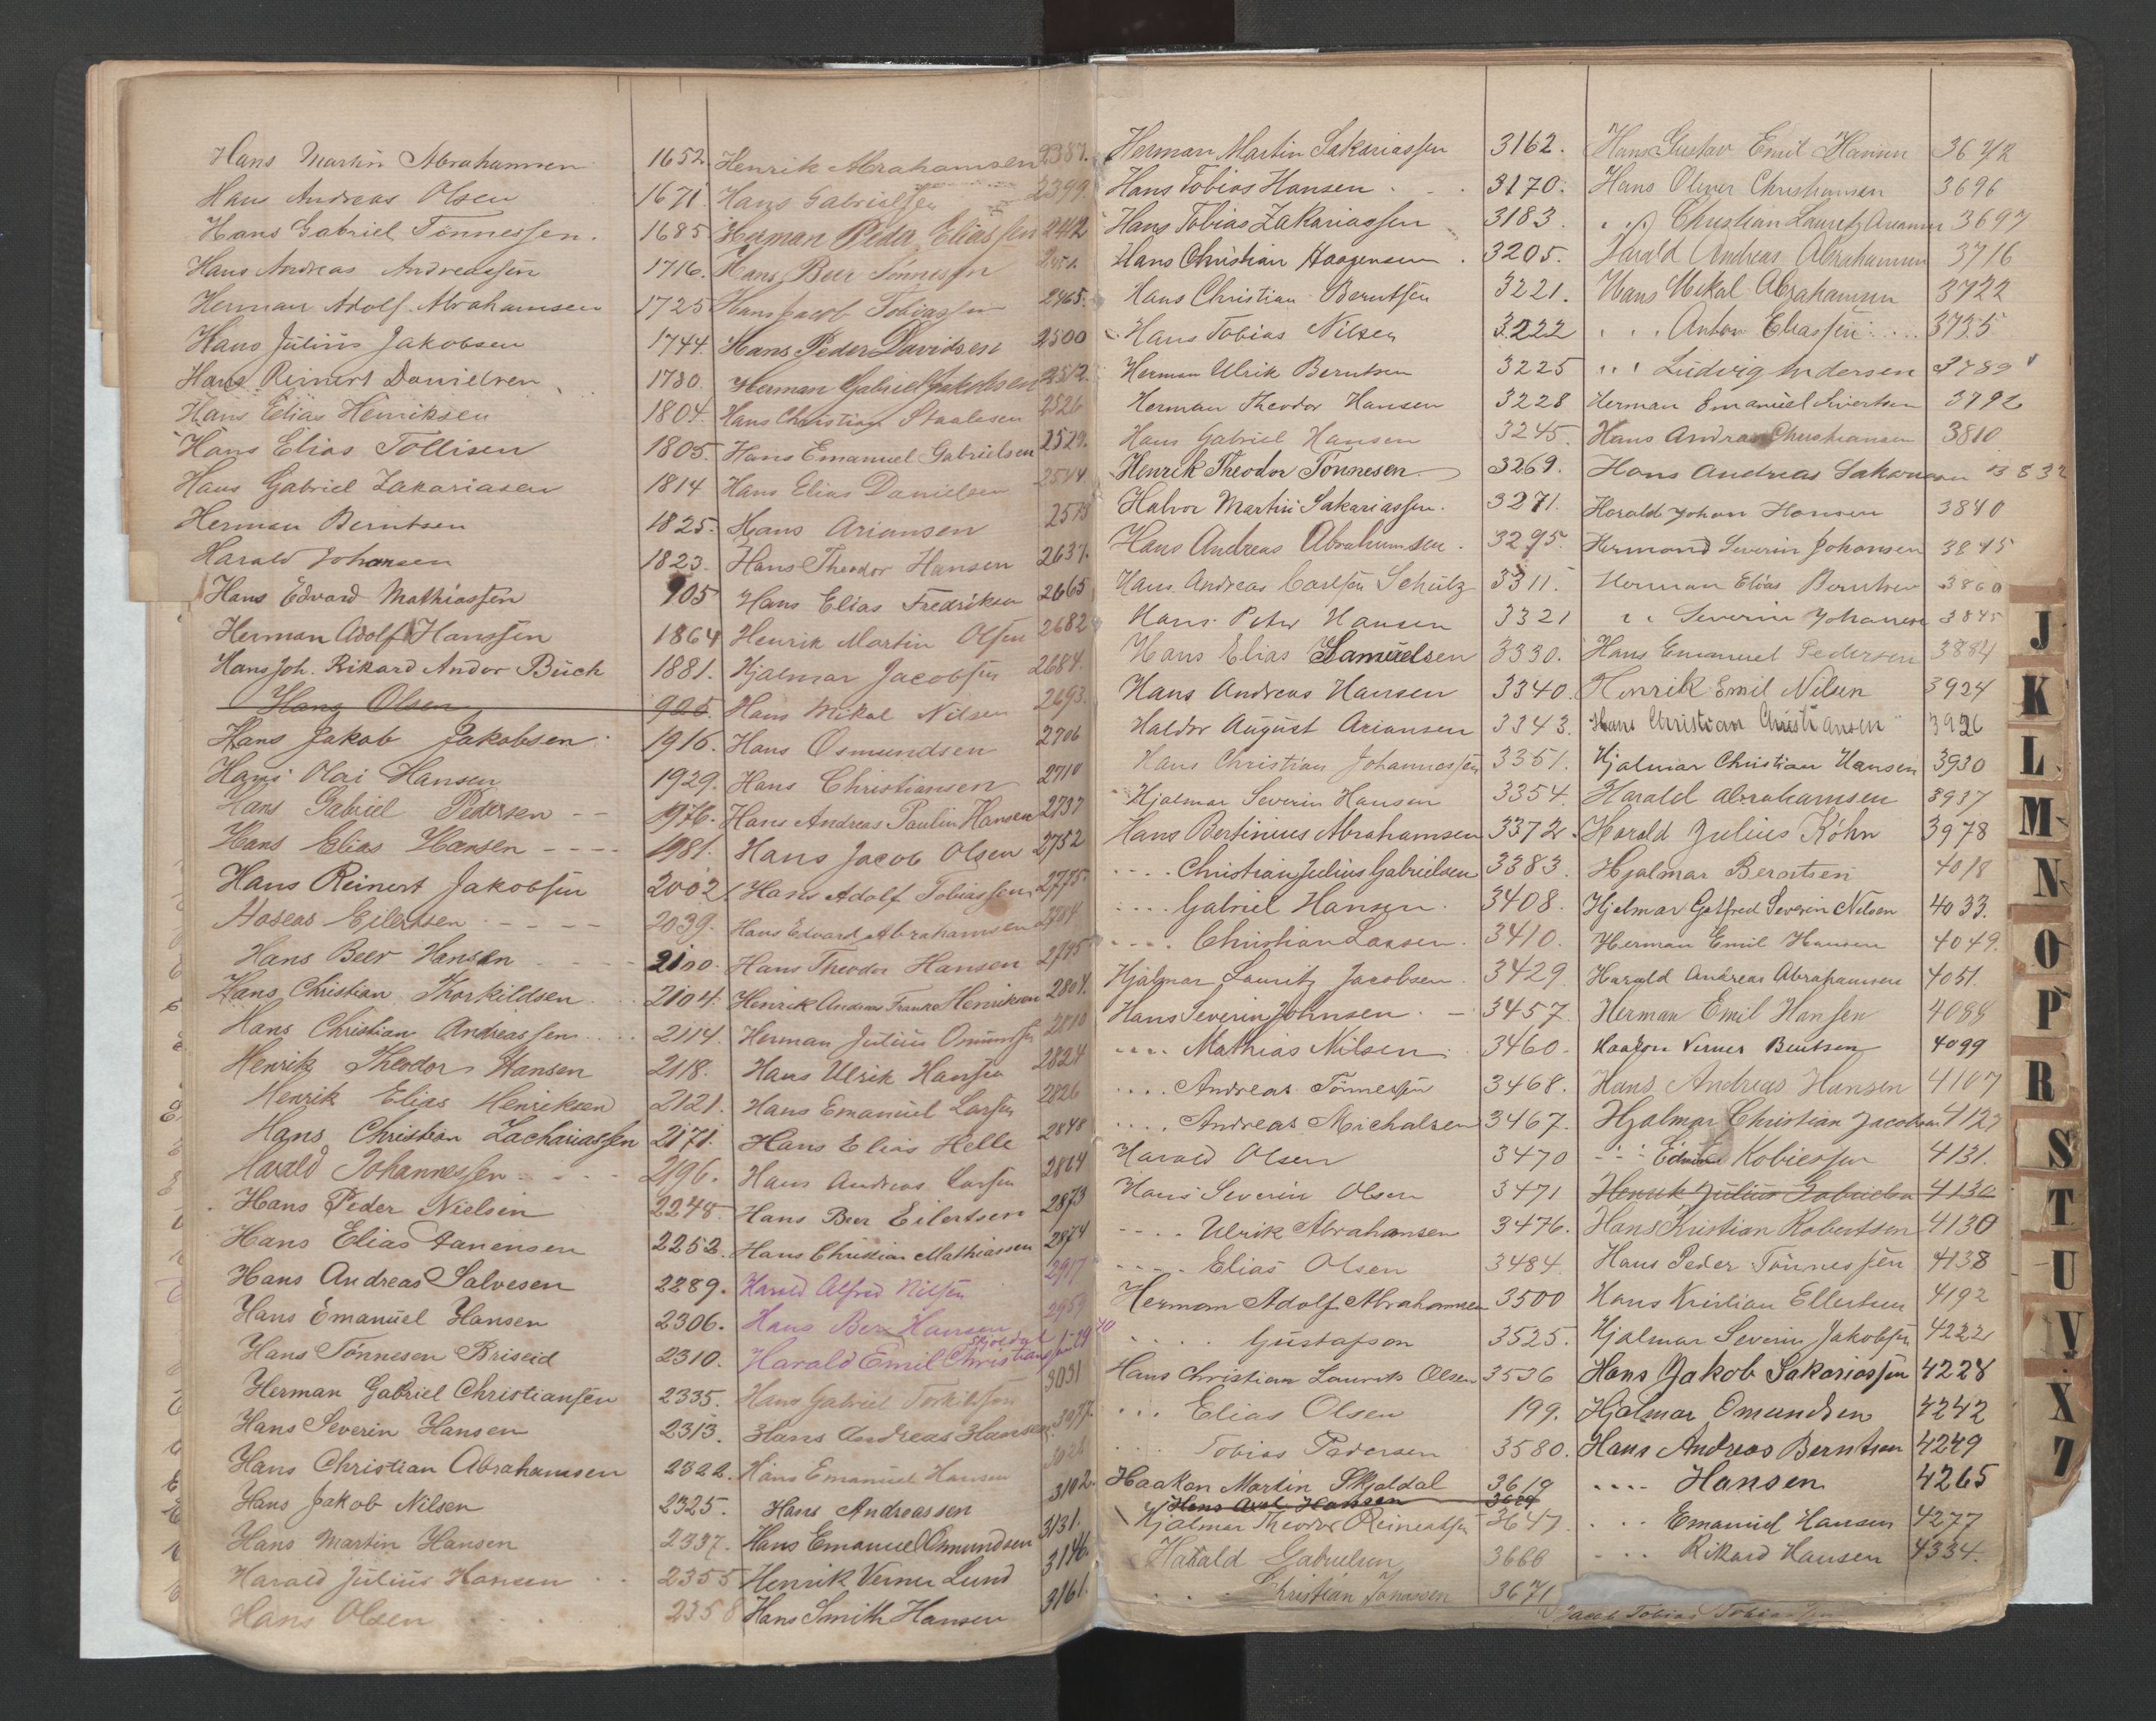 Hans Martin Abrahamsen 1652.
Hans Andreas Olsen 1671.
Hans Gabriel Tönnessen. 1685
Hans Andreas Andreassen 1716.
Herman Adolf Abrahamsen 1725
Hans Julius Jakobsen 1744.
Hans Reinert Danielsen 1780.
Hans Elias Henriksen 1804.
Hans Elias Tollisen 1805.
Hans Gabriel Zakariasen 1814
Herman Berntsen 1825.
Harald Johansen 1823.
Hans Edvard Mathiassen 905
Herman Adolf Hanssen 1864
Hans Joh. Rikard Andor Buch 1881.
Hans Olsen 925.
Hans Jakob Jakobsen 1916.
Hans Olai Hansen 1929.
Hans Gabriel Pedersen -- 1976.
Hans Elias Hansen ---- 1981.
Hans Reinert Jakobsen 2002.
Hoseas Eilertsen ---- 2039.
Hans Beer Hansen 2100.
Hans Christian Thorkildsen 2104.
Hans Christian Andreassen 2114.
Henrik Theodor Hansen 2118.
Henrik Elias Henriksen 2121.
Hans Christian Zachariassen 2171.
Harald Johannessen 2196.
Hans Peder Nielsen 2248.
Hans Elias 2252.
Hans Andreas Salvesen 2289.
Hans Emanuel Hansen 2306.
Hans Tönnesen Briseid 2310.
Herman Gabriel Christiansen 2335.
Hans Severin Hansen 2313.
Hans Christian Abrahamsen 2322.
Hans Jakob Nilsen 2325.
Hans Martin Hansen 2337.
Harald Julius Hansen 2355
Hans Olsen 2358
Henrik Abrahamsen 2387.
Hans Gabrielsen 2399.
Herman Peder Eliassen 2412
Hans Beer Tönnessen
Hans Jacob Tobiassen 2465.
Hans Peder Davidsen 2500
Herman Gabriel Jakobsen 2512.
Hans Christian Staalesen 2526
Hans Emanuel Gabrielsen 2529.
Hans Elias Danielsen 2544
Hans Ariansen 2578
Hans Theodor Hansen 2637.
Hans Elias Fredriksen 2665
Henrik Martin Olsen 2682
Hjalmar Jacobsen 2684.
Hans Mikal Nilsen 2693.
Hans Osmundsen 2706
Hans Christiansen 2710
Hans Andreas Paulin Hansen 2737
Hans Jacob Olsen 2752
Hans Adolf Tobiassen 2775.
Hans Edvard Abrahamsen 2784.
Hans Theodor Hansen 2795
Henrik Andreas Henriksen 2804.
Herman Julius 2810
Hans Ulrik Hansen 2824
Hans Emanuel Larsen 2826
Hans Elias Helle 2848
Hans Andreas Larsen 2864
Hans Beer Eilertsen 2873
Hans Christian Mathiassen 2874
Harald Alfred Nilsen 2917
Hans Beer Hansen 2959
Harald Emil Christiansen
Hans Gabriel Torkildsen 3031
Hans Andreas Hansen 3077.
Hans Emanuel Hansen
Hans Andreassen 3102.
Hans Emanuel Osmundsen 3131.
Henrik Verner Lund 3146.
Hans Smith Hansen 3161.
Herman Martin Sakariassen 3162.
Hans Tobias Hansen 3170.
Hans Tobias Zakariassen 3183.
Hans Christian Haagensen 3205.
Hans Christian Berntsen 3221.
Hans Tobias Nilsen 3222
Herman Ulrik Berntsen 3225
Herman Theodor Hansen 3228
Hans Gabriel Hansen 3245.
Henrik Theodor Tönnesen 3269.
Halvor Martin Sakariassen. 3271.
Hans Andreas Abrahamsen. 3295.
Hans Andreas Carlsen Schülz 3311.
Hans Peter Hansen 3321
Hans Elias Samuelsen 3330.
Hans Andreas Hansen 3340.
Haldor August Ariansen 3343.
Hans Christian Johannessen 3351.
Hjalmar Severin Hansen 3354.
Hans Bertinius Abrahamsen 3372.
.... Christian Julius Gabrielsen 3383.
.... Gabriel Hansen. 3408.
.... Christian Larsen. 3410.
Hjalmar Lauritz Jacobsen 3429
Hans Severin Johnsen. - 3457
.... Mathias Nilsen 3460.
.... Andreas Tönnessen 3468.
.... Andreas Michalsen 3467.
Harald Olsen 3470
Hans Severin Olsen 3471
--. Ulrik Abrahamsen 3476.
---- Elias Olsen 3484.
Herman Adolf Abrahamsen 3500
.... Gustafson 3525.
Hans Christian Laurits Olsen 3536
... Elias Olsen 199.
... Tobias Pedersen 3580.
Haakon Martin Skjoldal 3619
Hans Axel Hansen 3629
Hjalmar Theodor Reinertsen 3647.
Harald Gabrielsen 3666
.. Christian Jonassen 3671
Hans Gustav Emil Hansen
Hans Oliver Christiansen 3696
Christian Lauritz Ariansen 3697
Harald Andreas Abrahamsen 3716
Hans Mikal Abrahamsen 3722
... Anton Eliassen 3735
" " Ludvig Andersen 3789
Herman Emanuel Sivertsen 3792
Hans Andreas Christiansen 3810
Hans Andreas 3832
Harald Johan Hansen 3840
Hermand Severin Johansen 3845
Herman Elias Berntsen 3860
" Severin Johansen 3845
Hans Emanuel Pedersen 3884
Henrik Emil Nilsen 3924
Hans Christian Christiansen 3926
Hjalmar Christian Hansen 3930
Harald Abrahamsen 3937
Harald Julius Köhn 3978
Hjalmar Berntsen 4018
Hjalmar Gotfred Severin Nilsen 4033.
Herman Emil Hansen 4049.
Harald Andreas Abrahamsen 4051.
Herman Emil Hansen 4088
Haakon Verner Bentsen 4099
Hans Andreas Hansen 4107
Hjalmar Christian Jacobsen 4127
--- Edvin 4131.
Henrik Julius Gabrielsen 4130
Hans Kristian Robertsen 4130
Hans Peder Tönnessen 4138
Hans Kristian Ellertsen 4192
Hjalmar Severin Jakobsen 4222
Hans Jakob Sakariassen 4228
Hjalmar Omundsen 4242
Hans Andreas Berntsen 4249
.... Hansen 4265
... Emanuel Hansen 4277
.... Rikard Hansen 4334.
Jacob Tobias Tobiassen
J
K
L
M
N
O
P
R
S
T
U
V
X
Z